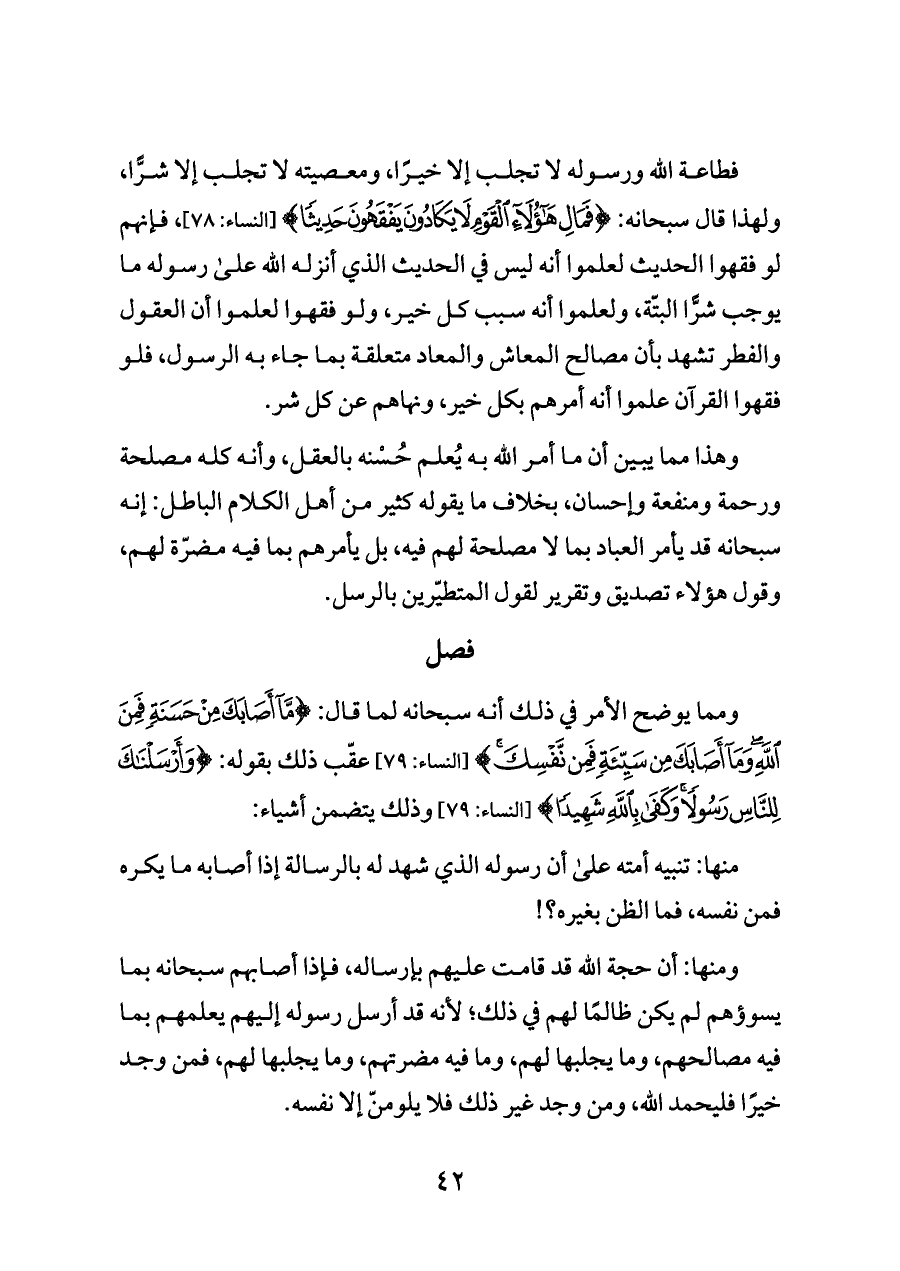 فطاعة الله ورسوله لا تجلب إلا خيرًا، ومعصيته لا تجلب إلا شرًّا،
ولهذا قال سبحانه: ﴿فَمَالِ هَٰٓؤُلَآءِ ٱلْقَوْمِ لَا يَكَادُونَ يَفْقَهُونَ حَدِيثًا﴾ [النساء: ٧٨]، فإنهم
لو فقهوا الحديث لعلموا أنه ليس في الحديث الذي أنزله الله علىٰ رسوله ما
يوجب شرًّا البتّة، ولعلموا أنه سبب كل خير، ولو فقهوا لعلموا أن العقول
والفطر تشهد بأن مصالح المعاش والمعاد متعلقة بما جاء به الرسول، فلو
فقهوا القرآن علموا أنه أمرهم بكل خير، ونهاهم عن كل شر.
وهذا مما يبين أن ما أمر الله به يُعلم حُسْنه بالعقل، وأنه كله مصلحة
ورحمة ومنفعة وإحسان، بخلاف ما يقوله كثير من أهل الكلام الباطل: إنه
سبحانه قد يأمر العباد بما لا مصلحة لهم فيه، بل يأمرهم بما فيه مضرّة لهم،
وقول هؤلاء تصديق وتقرير لقول المتطيّرين بالرسل.
فصل
ومما يوضح الأمر في ذلك أنه سبحانه لما قال: ﴿مَّآ أَصَابَكَ مِنْ حَسَنَةٍ فَمِنَ
ٱللَّهِ ۖ وَمَآ أَصَابَكَ مِن سَيِّئَةٍ فَمِن نَّفْسِكَ ۚ﴾ [النساء: ٧٩] عقّب ذلك بقوله: ﴿وَأَرْسَلْنَٰكَ
لِلنَّاسِ رَسُولًا ۚ وَكَفَىٰ بِٱللَّهِ شَهِيدًا﴾ [النساء: ٧٩] وذلك يتضمن أشياء:
منها: تنبيه أمته علىٰ أن رسوله الذي شهد له بالرسالة إذا أصابه ما يكره
فمن نفسه، فما الظن بغيره؟!
ومنها: أن حجة الله قد قامت عليهم بإرساله، فإذا أصابهم سبحانه بما
يسوؤهم لم يكن ظالمًا لهم في ذلك؛ لأنه قد أرسل رسوله إليهم يعلمهم بما
فيه مصالحهم، وما يجلبها لهم، وما فيه مضرتهم، وما يجلبها لهم، فمن وجد
خيرًا فليحمد الله، ومن وجد غير ذلك فلا يلومنّ إلا نفسه.
٤٢